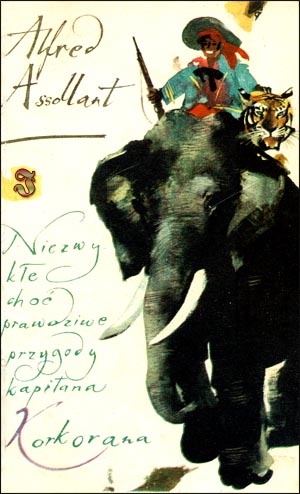 Alfred
Assollant
J
Niezwy-
kłe
choć
prawdziwe
przygody
kapitana
Korkorana